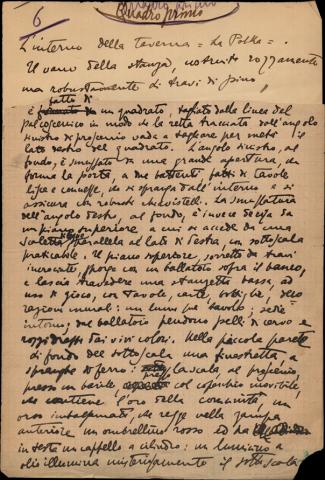 6
Quadro primo
L'interno della taverna = La Polka = .
Il vano della stanza, costruito rozzamente
ma robustamente di travi di pino,
fatto di
è un quadrato, tagliato dalla linea del
palcoscenico in modo che la retta tirata dall'angolo
sinistro di proscenio vada a tagliare per metà il
lato destro del quadrato. L'angolo sinistro, al
fondo, è smussato da una grande apertura, che
forma la porta, a due battenti, fatti di tavole
lisce e connesse, che si spranga dall'interno e si
assicura con robusti chiavistelli. La smussatura
dell'angolo destro, al fondo, è invece decisa da
un piano superiore a cui si accede da una
scaletta parallela al lato di destra, un sottoscala
praticabile. Il piano superiore, sorretto da travi
incrociate, sporge con un ballatoio sopra il banco,
e lascia travedere una stanzetta bassa, ad
uso di gioco, con tavole, carte, bottiglie, deco
razioni murali: un lume sul tavolo, sedie
intorno, dal ballatoio pendono pelli di cervo e
rozzi drappi dai vivi colori. Nella piccola parete
di fondo del sottoscala una finestretta a
spranghe di ferro: presso la scala, al proscenio,
presso un barile col coperchio movibile,
che contiene l'oro della comunità, un
orso imbalsamato, che regge nella zampa
anteriore un ombrellino rosso ed ha
in testa un cappello a cilindro: un lumicino a
olio illumina misteriosamente il sottoscala